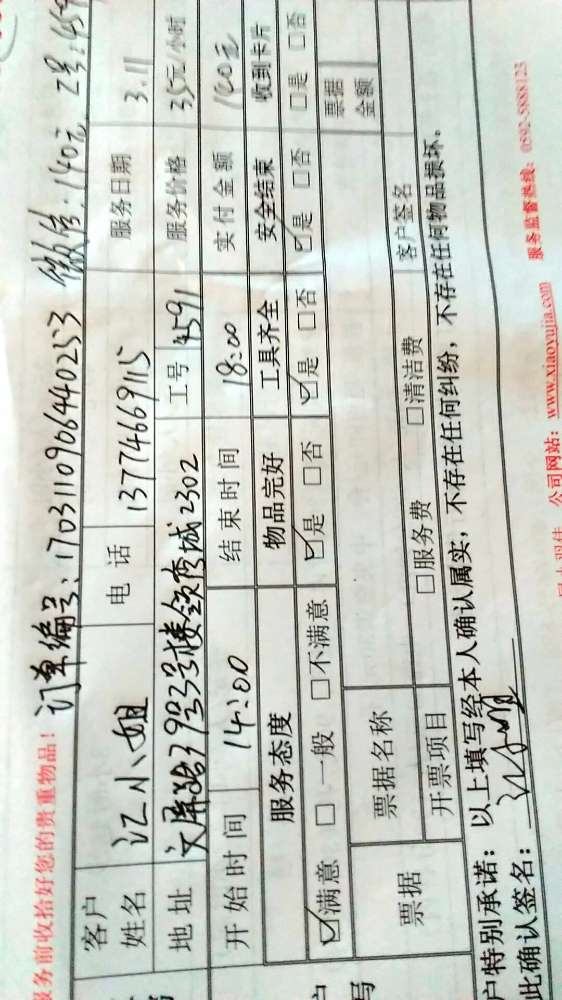 服务前收拾好您的贵重物品! 订单编号:170311090644025253 微信:140元 工号:459
客户姓名 江小姐 电话 13774669115 服务日期 3.11
地址 文屏路79号3号楼领秀城2302 工号 4591 服务价格 35元/小时
开始时间 14:00 结束时间 18:00 实付金额 140元
服务态度 物品完好 工具齐全 安全结束 收到卡片
☑满意 □一般 □不满意 ☑是 □否 ☑是 □否 ☑是 □否 □是 □否
票据 票据名称 票据金额
开票项目 □服务费 □清洁费 客户签名
户特别承诺:以上填写经本人确认属实,不存在任何纠纷,不存在任何物品损坏。
此确认签名:
公司网站:www.xiaoyujia.com 服务监督热线:0592-5888123